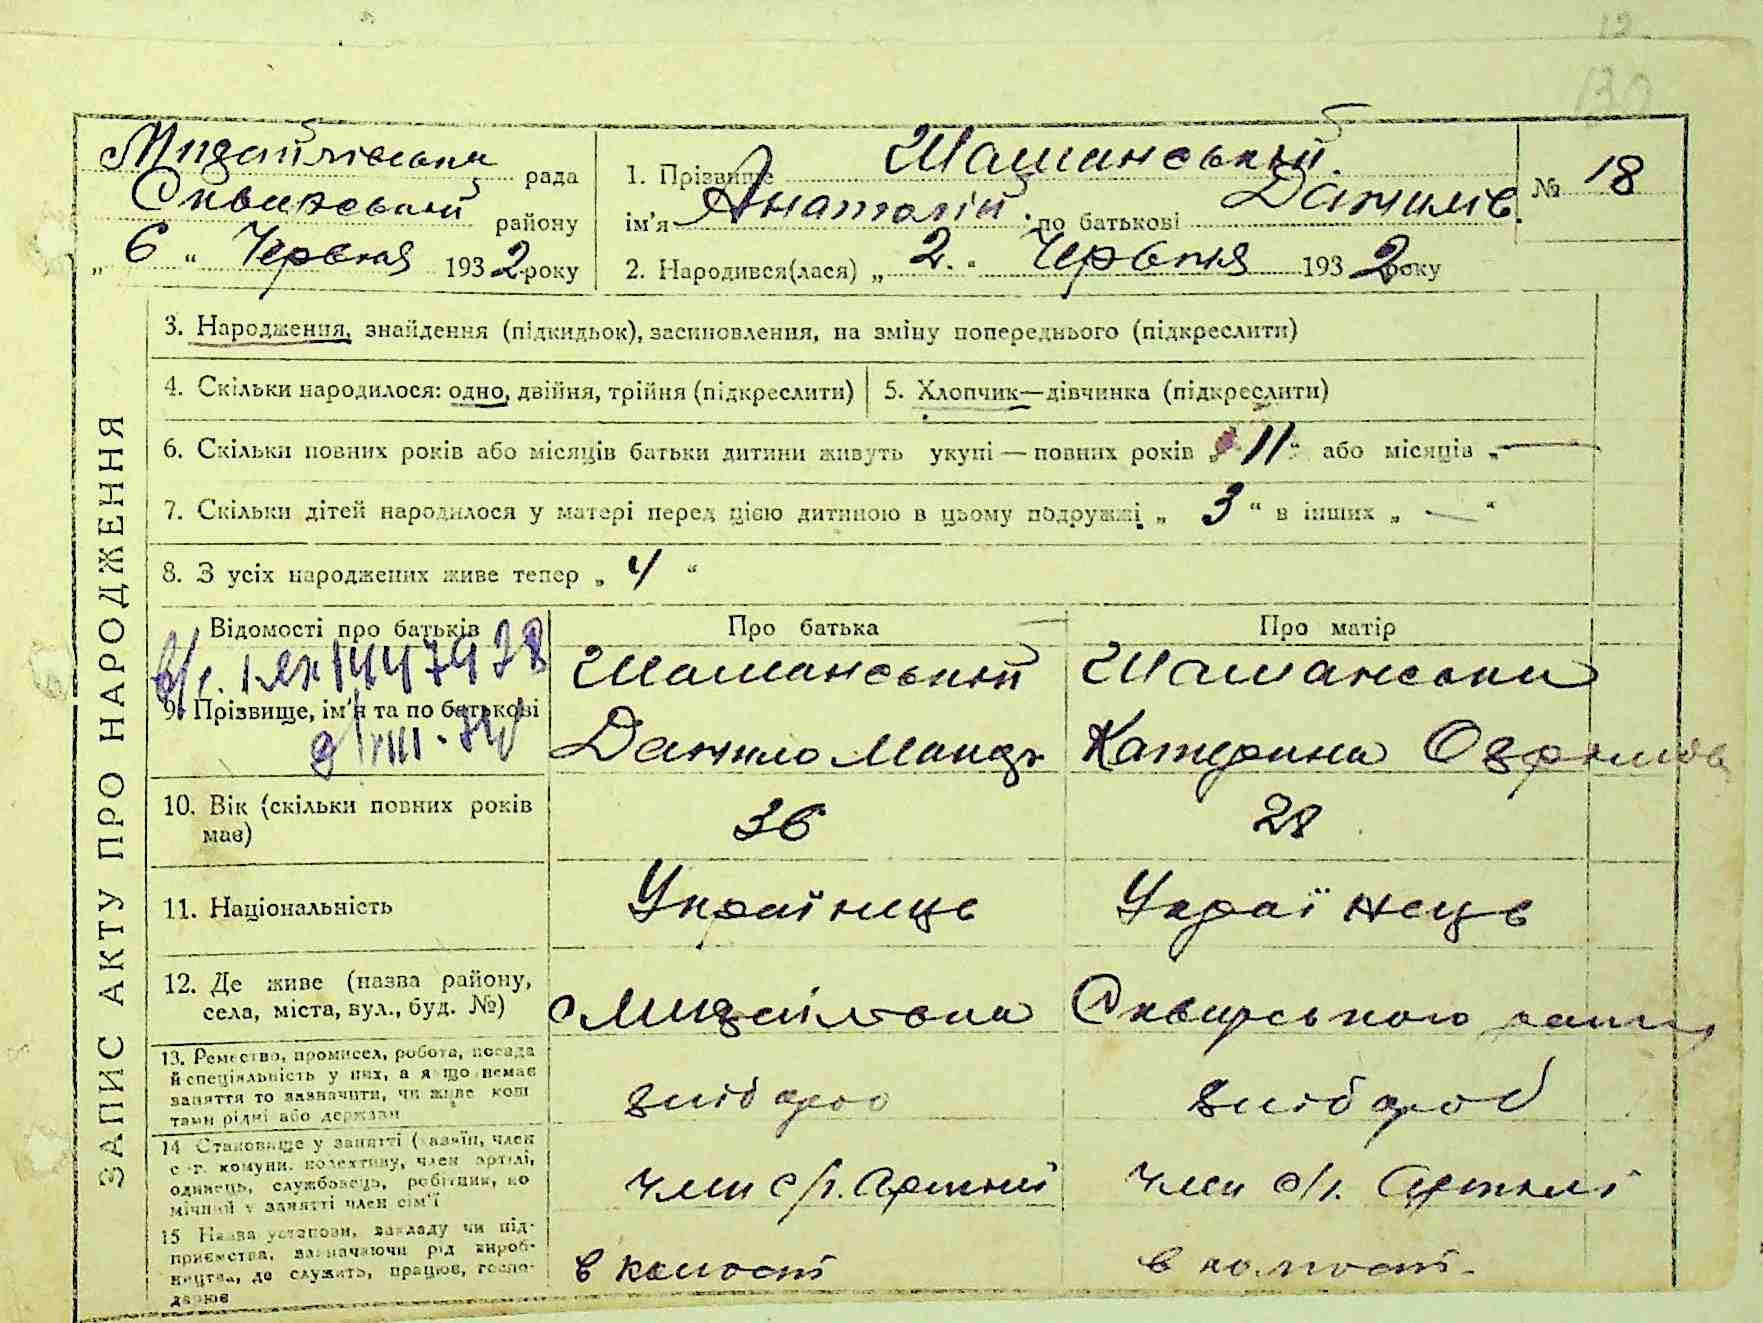 130
ЗАПИС АКТУ ПРО НАРОДЖЕННЯ
рада
Сквирський району
„6“ Червня 1932 року
1. Прізвище Шаманський
ім'я Анатолій по батькові Данилів.
2. Народився(лася) „2.“ Червня 1932 року
№ 18
3. Народження, знайдення (підкидьок), засиновлення, на зміну попереднього (підкреслити)
4. Скільки народилося: одно, двійня, трійня (підкреслити)
5. Хлопчик—дівчинка (підкреслити)
6. Скільки повних років або місяців батьки дитини живуть укупі — повних років „11“ або місяців „—
7. Скільки дітей народилося у матері перед цією дитиною в цьому подружжі „3“ в інших „—“
8. З усіх народжених живе тепер „4“
Відомості про батьків
Про батька
Про матір
9. Прізвище, ім'я та по батькові
Шаманський
Данило
Шаманська
Катерина
10. Вік (скільки повних років має)
36
28
11. Національність
Українець
Українець
12. Де живе (назва району, села, міста, вул., буд. №)
Сквирського
13. Ремество, промисел, робота, посада й спеціяльність у них, а якщо немає заняття то зазначити, чи живе коштами рідні або держави
хлібороб
хлібороб
14 Становище у занятті (хазяїн, член с.-г. комуни, колективу, член артілі, одинець, службовець, робітник, помічний у занятті член сім'ї
член с/г. артилі
член с/г. артилі
15 Назва установи, закладу чи підприємства, зазначаючи рід виробництва, де служить, працює, господарює
в
в